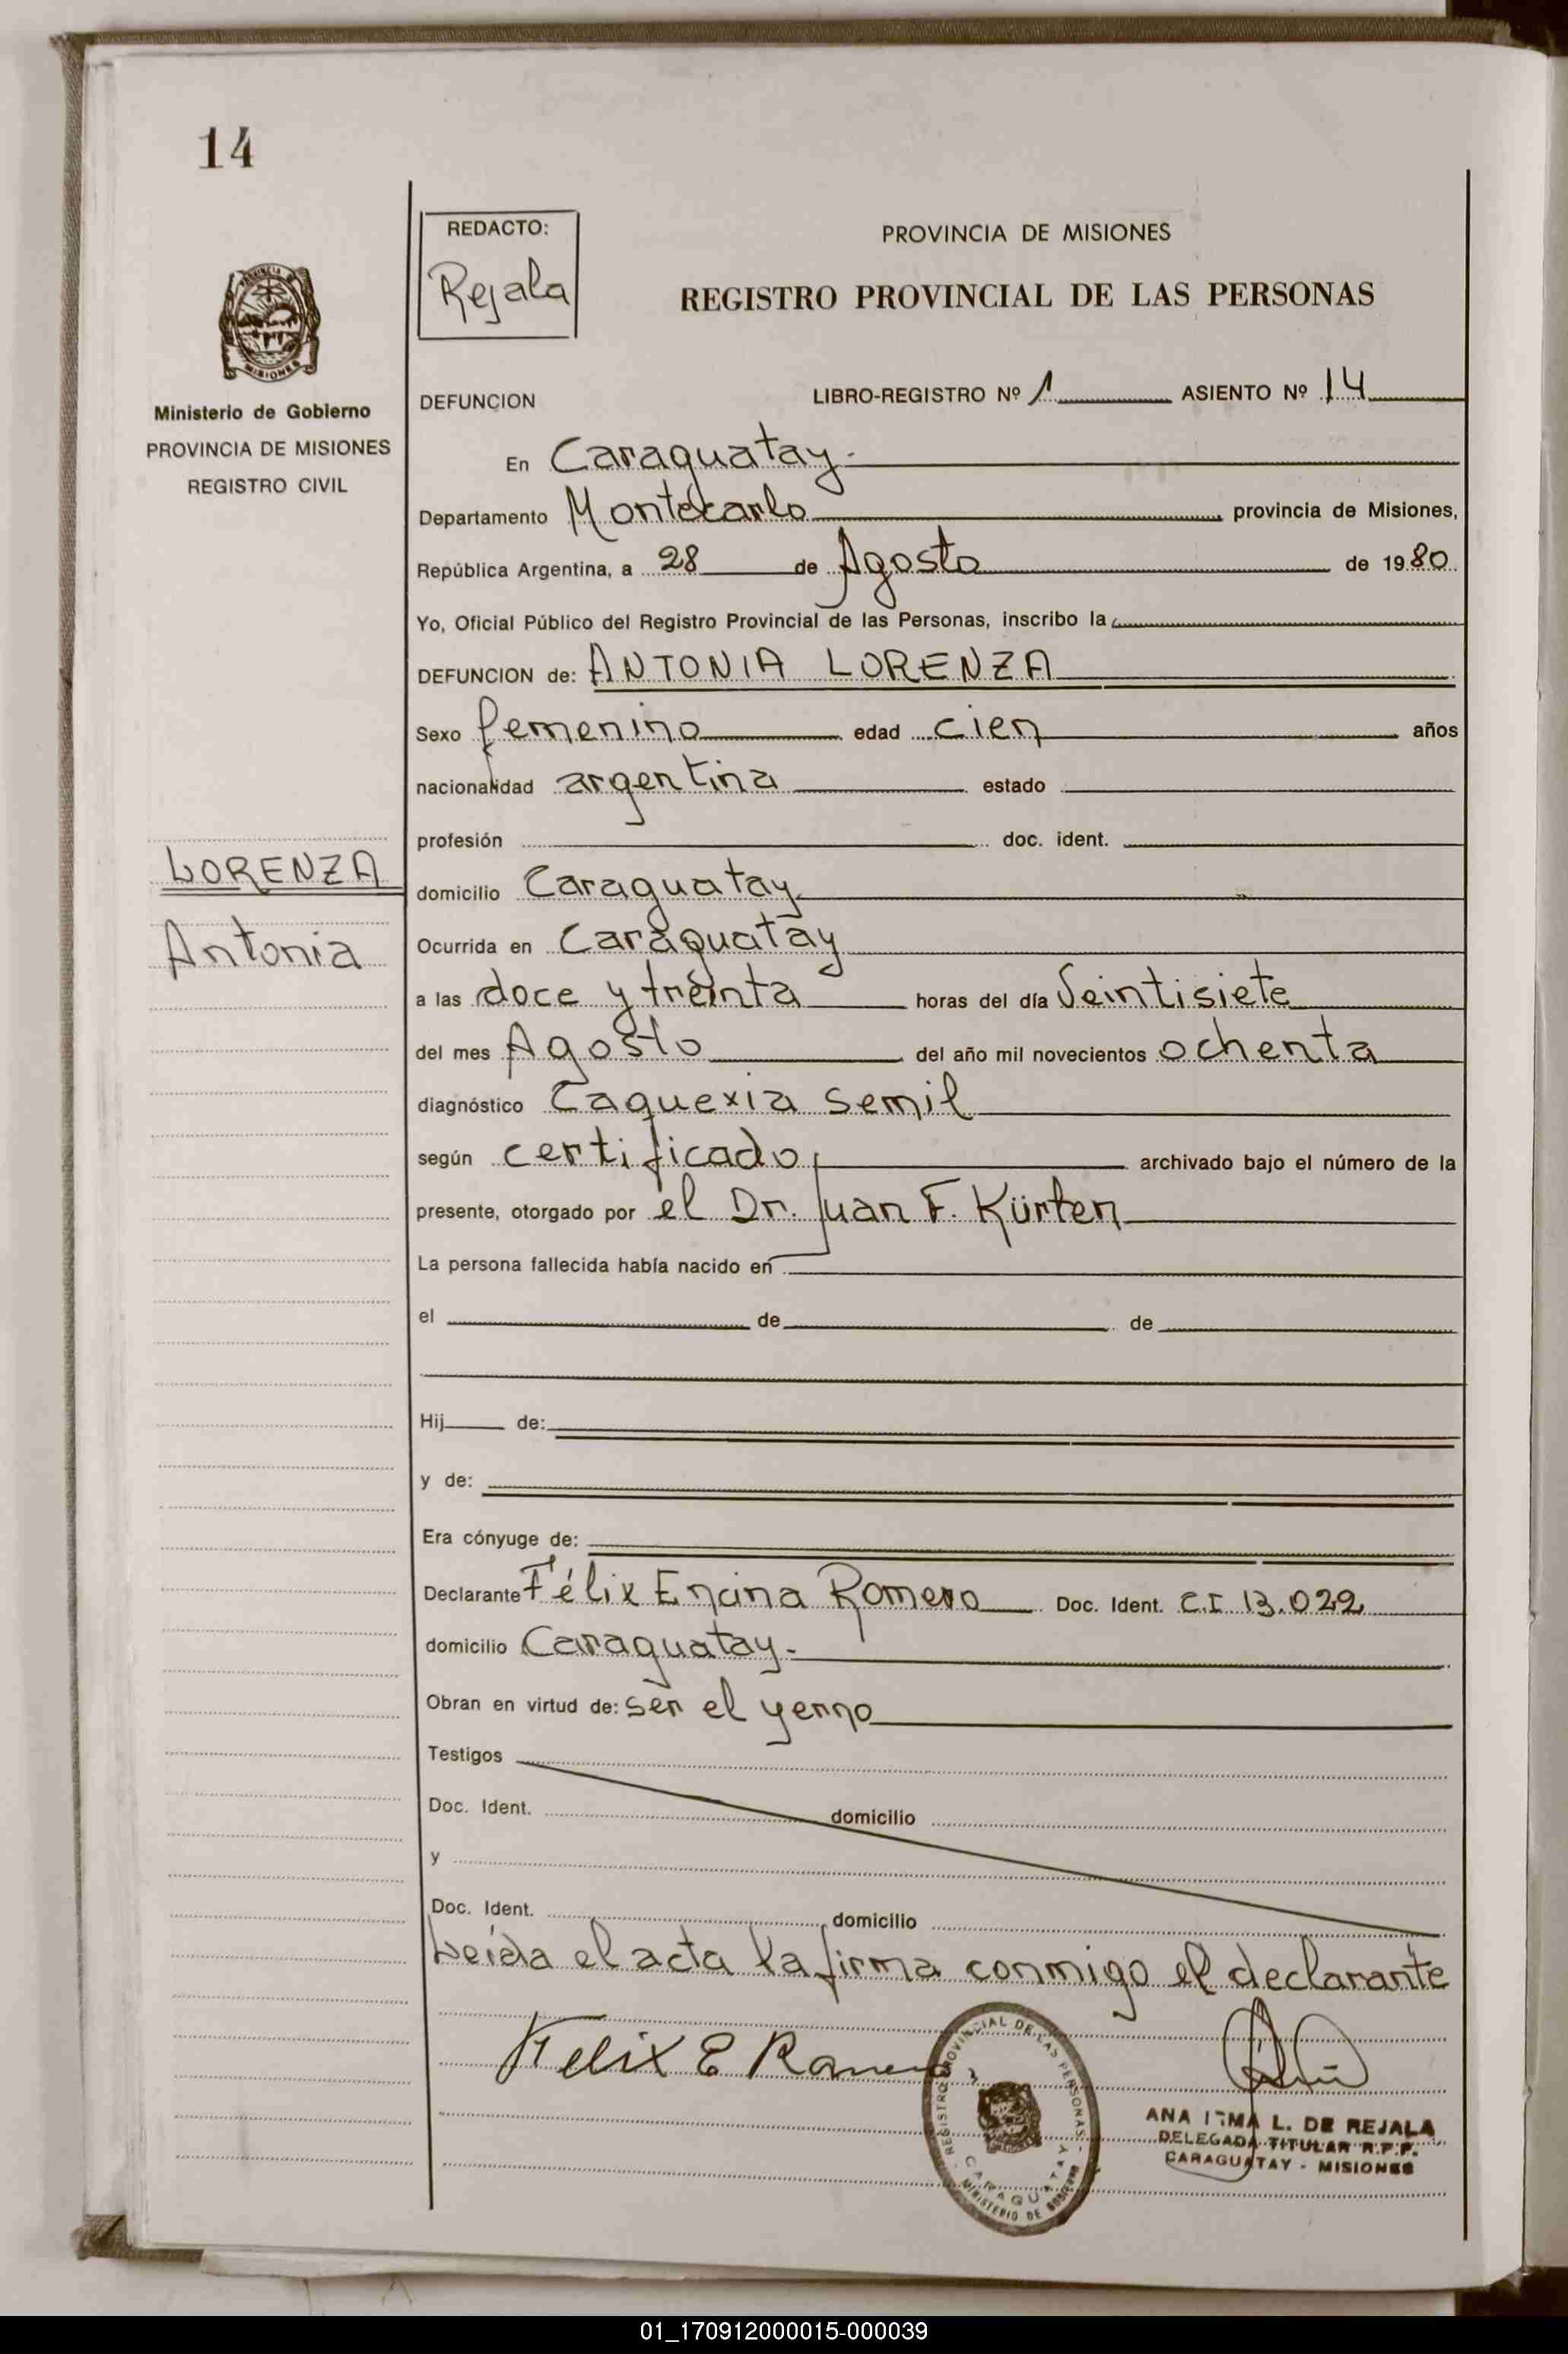 14
REDACTO:
Rejala
PROVINCIA DE MISIONES
REGISTRO PROVINCIAL DE LAS PERSONAS
Ministerio de Gobierno
PROVINCIA DE MISIONES
REGISTRO CIVIL
DEFUNCION LIBRO-REGISTRO Nº 1 ASIENTO Nº 14
En Caraguatay.
Departamento Montecarlo provincia de Misiones,
República Argentina, a 28 de Agosto de 1980
Yo, Oficial Público del Registro Provincial de las Personas, inscribo la
DEFUNCION de: ANTONIA LORENZA
Sexo femenino edad cien años
nacionalidad argentina estado
profesión doc. ident.
LORENZA
Antonia
domicilio Caraguatay
Ocurrida en Caraguatay
a las doce y treinta horas del día Veintisiete
del mes Agosto del año mil novecientos ochenta
diagnóstico Caquexia semil
según certificado archivado bajo el número de la
presente, otorgado por el Dr. Juan F. Kürten
La persona fallecida había nacido en
el de de
Hij de:
y de:
Era cónyuge de:
Declarante Félix Encina Romero Doc. Ident. C.I 13.022
domicilio Caraguatay.
Obran en virtud de: ser el yerno
Testigos
Doc. Ident. domicilio
y
Doc. Ident. domicilio
Leída el acta la firma conmigo el declarante
Felix E Romero
REGISTRO PROVINCIAL DE LAS PERSONAS
CARAGUATAY
MINISTERIO DE GOBIERNO
ANA IRMA L. DE REJALA
DELEGADA TITULAR R.P.P.
CARAGUATAY - MISIONES
PROVINCIA DE
MISIONES
01_170912000015-000039